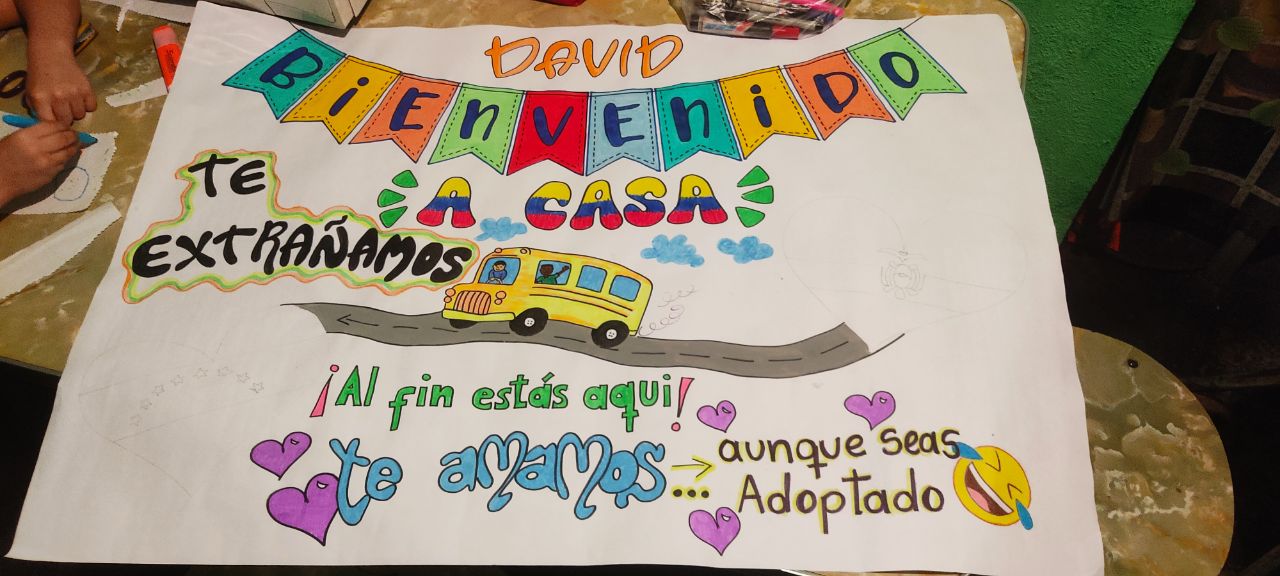 DAVID
BiEnVEniDO
A CASA
TE
EXTRAÑAMOS
¡Al fin estás aqui!
te amamos...
aunque seas
Adoptado